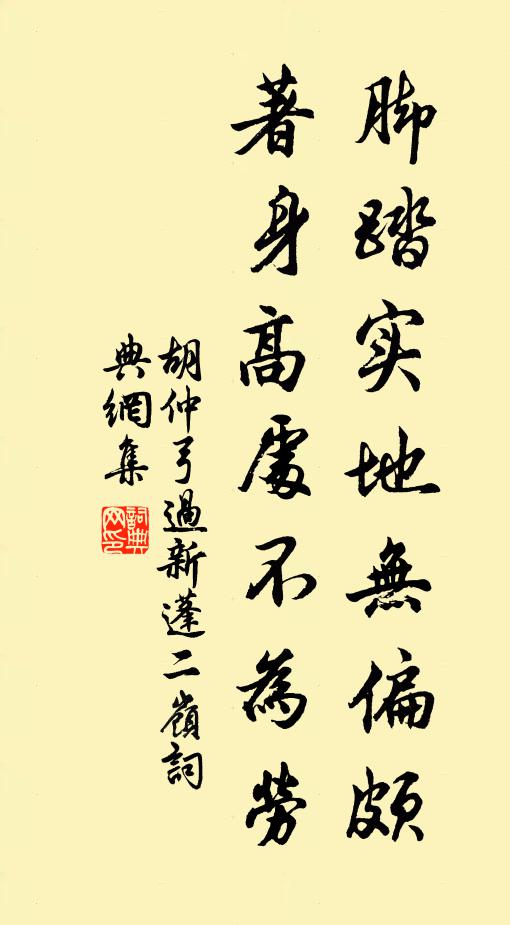 脚踏实地無偏頗
著身高處不為勞
胡仲弓過新蓬二嶺詞
典網集
詞典网印